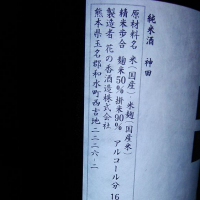 純米酒 神田
原材料名 米(国産)・米麹(国産米)
精米歩合 麹米50% 掛米90% アルコール分 16
製造者 花の香酒造株式会社
熊本県玉名郡和水町西吉地二二二六-二